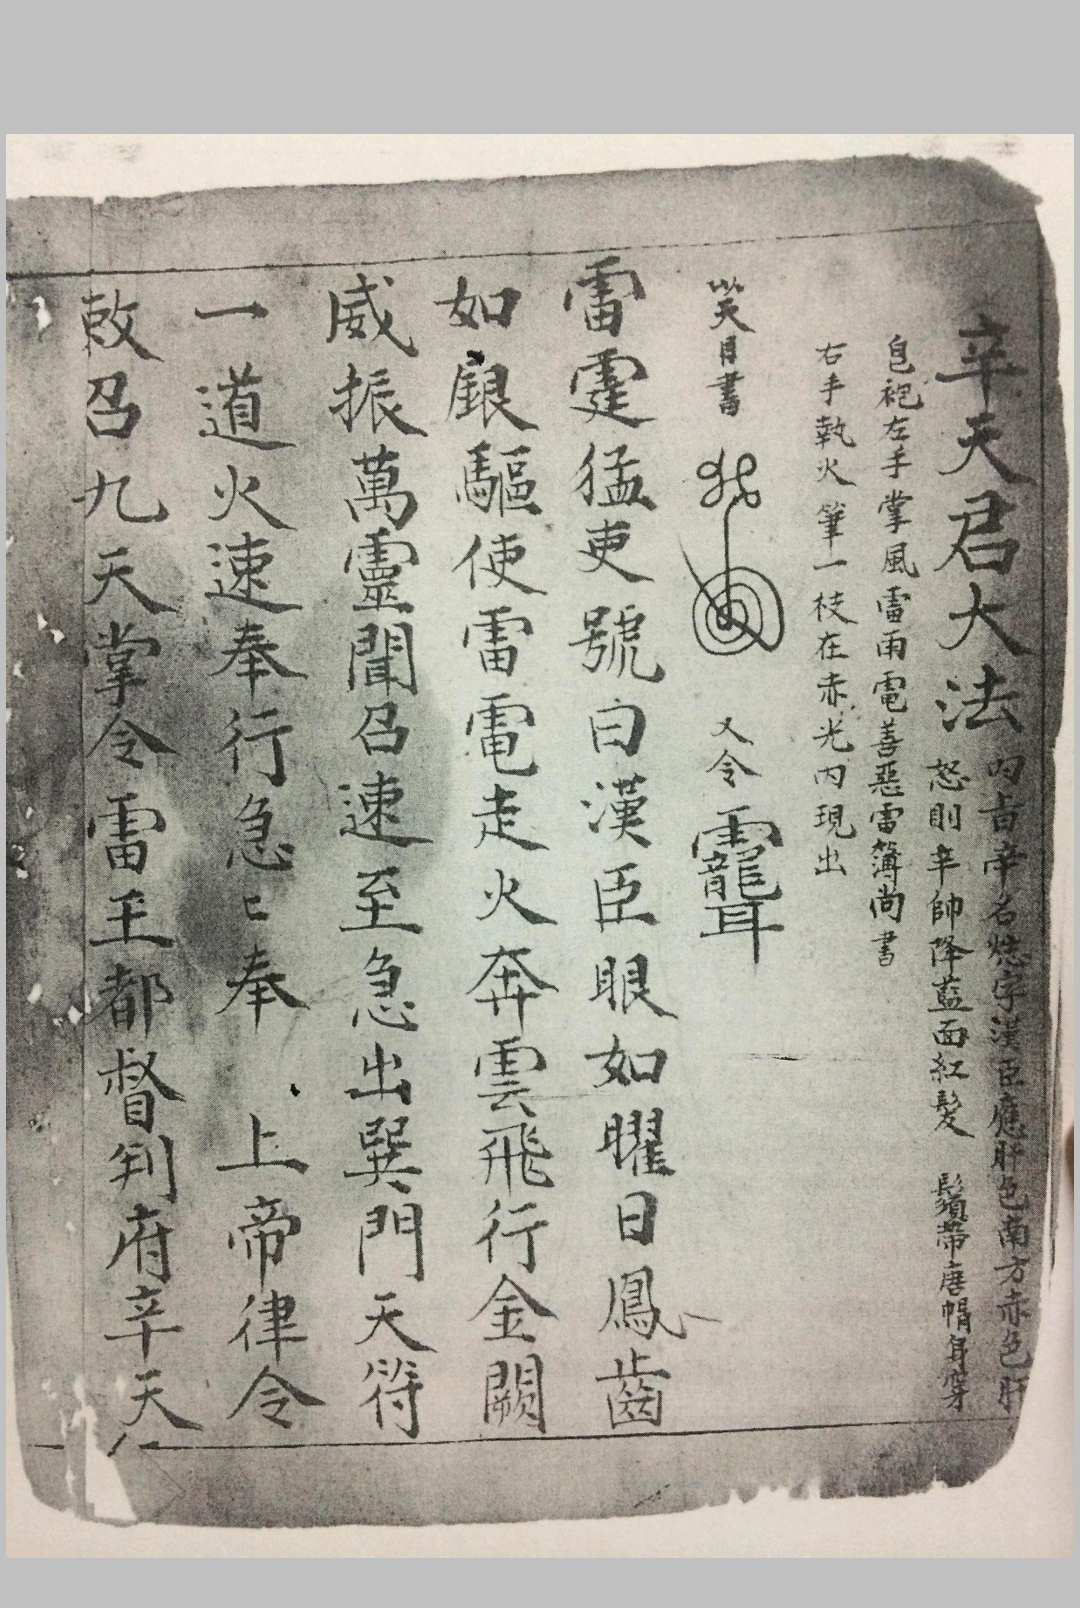 辛天君大法
內旨辛名㤠字漢臣應肝色南方赤色肝
怒則辛帥降藍面紅髮 鬚帶唐帽身穿
皂袍左手掌風雷雨電善惡雷簿尚書
右手執火筆一枝在赤光內現出
笑月書 又令
雷霆猛吏號曰漢臣眼如曜日鳳齒
如銀驅使雷電走火奔雲飛行金闕
威振萬靈聞召速至急出巽門天符
一道火速奉行急〻奉 上帝律令
敕召九天掌令雷王都督判府辛天